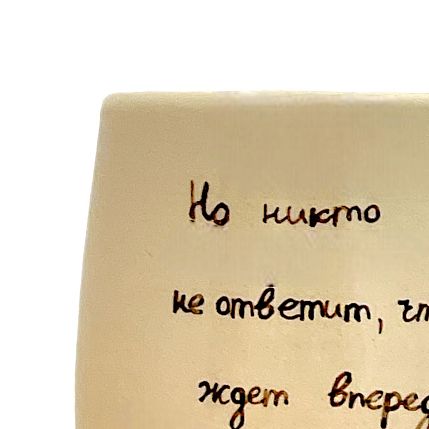 Но никто
не ответит, чт
ждет вперед